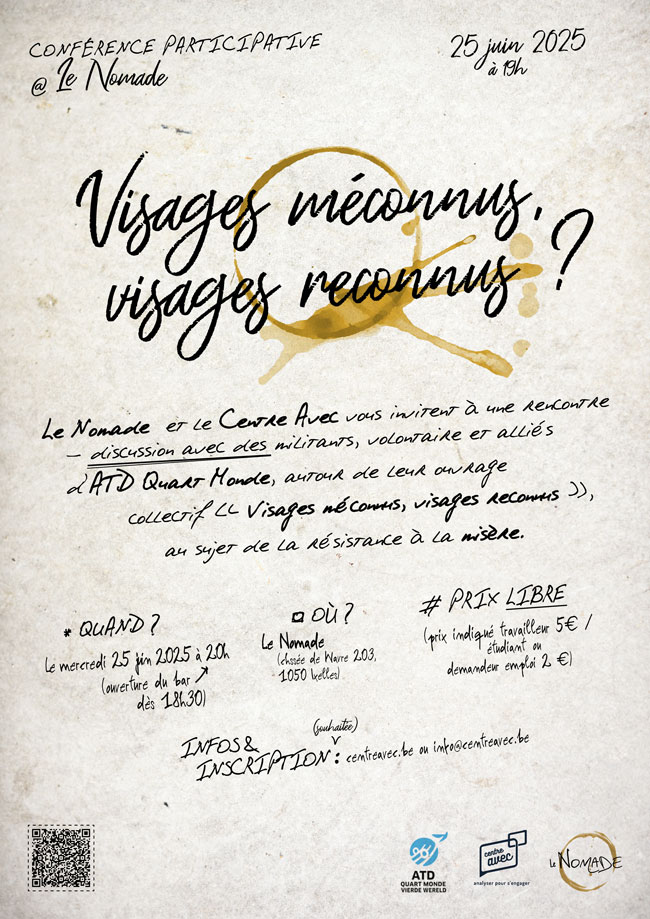 CONFÉRENCE PARTICIPATIVE
@ Le Nomade
25 juin 2025
à 19h
Visages méconnus,
visages reconnus ?
Le Nomade et le Centre Avec vous invitent à une rencontre
– discussion avec des militants, volontaire et alliés
d'ATD Quart Monde, autour de leur ouvrage
collectif « Visages méconnus, visages reconnus »,
au sujet de la résistance à la misère.
* QUAND ?
Le mercredi 25 jin 2025 à 20h
(ouverture du bar
dès 18h30)
OÙ ?
Le Nomade
(chssée de Wavre 203,
1050 Ixelles)
# PRIX LIBRE
(prix indiqué travailleur 5€ /
étudiant ou
demandeur emploi 2 €)
(souhaitée)
INFOS &
INSCRIPTION : centreavec.be ou info@centreavec.be
ATD
QUART MONDE
VIERDE WERELD
centre
avec
analyser pour s'engager
Le NOMADE